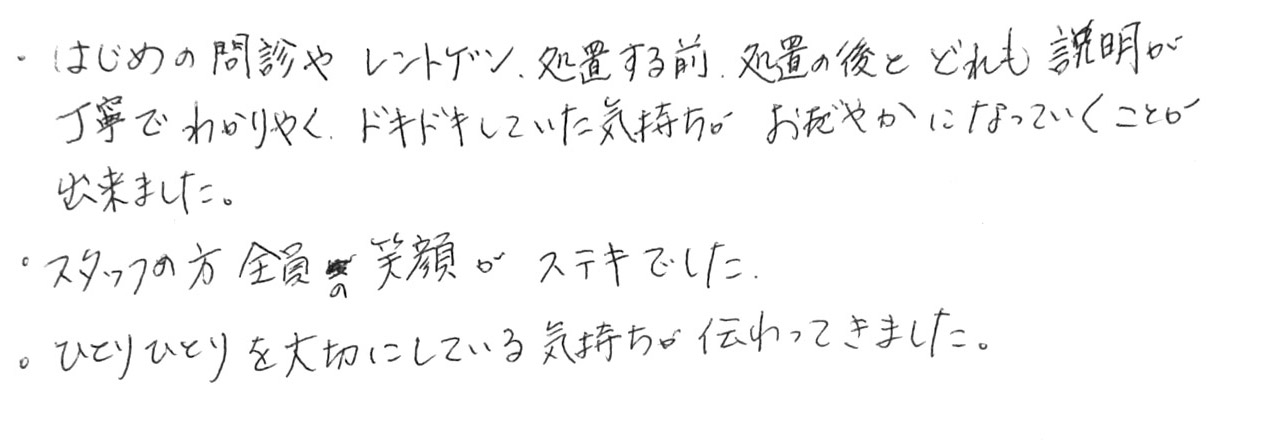 ・はじめの問診や レントゲン、処置する前、処置の後と どれも 説明が
丁寧で わかりやく、ドキドキしていた気持ちが おだやかになっていくことが
出来ました。
・スタッフの方 全員の 笑顔が ステキでした。
・ひとりひとりを大切にしている気持ちが伝わってきました。